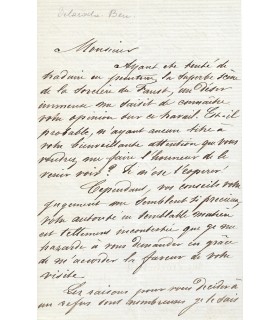 Delaroche Ben
Monsieur
Ayant été tenté de
traduire en peinture, la superbe scène
de la Sorcière de Faust, un désir
immense me saisit de connaître
votre opinion sur ce travail. Est-il
probable, n'ayant aucun titre à
votre bienveillante attention que vous
voudrez me faire l'honneur de le
venir voir ? Je n'ose l'espérer
Cependant, vos conseils votre
jugement me semblent si précieux,
votre autorité en semblable matière
est tellement incontestée que je me
hasarde à vous demander en grâce
de m'accorder la faveur de votre
visite.
Les raisons pour vous décider à
un refus sont nombreuses je le sais